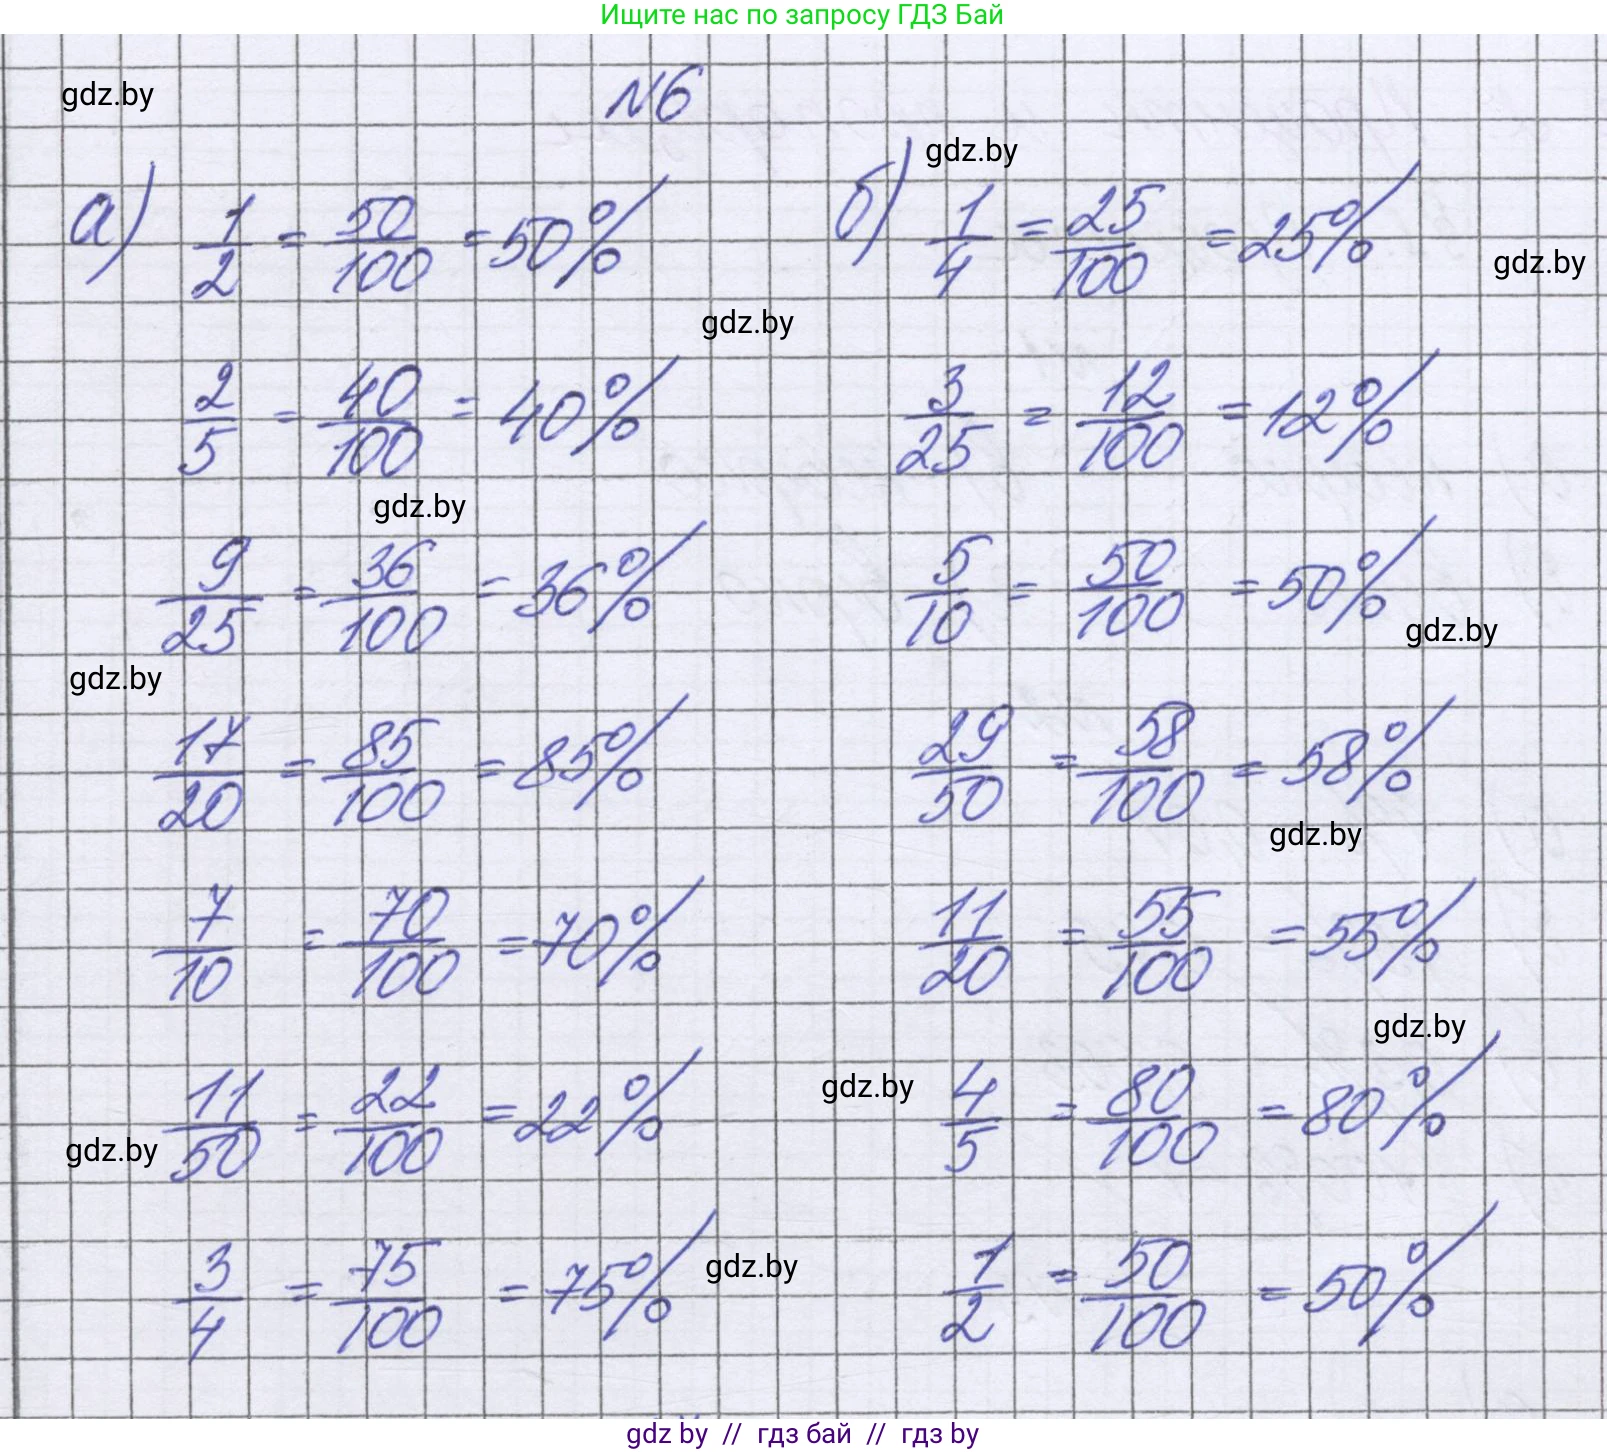 Ищите нас по запросу ГДЗ Бай
gdz.by
№6
gdz.by
а) 1/2 = 50/100 = 50% б) 1/4 = 25/100 = 25%
gdz.by
gdz.by
2/5 = 40/100 = 40% 3/25 = 12/100 = 12%
gdz.by
9/25 = 36/100 = 36% 5/10 = 50/100 = 50%
gdz.by
gdz.by
17/20 = 85/100 = 85% 29/50 = 58/100 = 58%
gdz.by
7/10 = 70/100 = 70% 11/20 = 55/100 = 55%
gdz.by
gdz.by
11/50 = 22/100 = 22% 4/5 = 80/100 = 80%
gdz.by
gdz.by
3/4 = 75/100 = 75% 1/2 = 50/100 = 50%
gdz by // гдз бай // гдз by